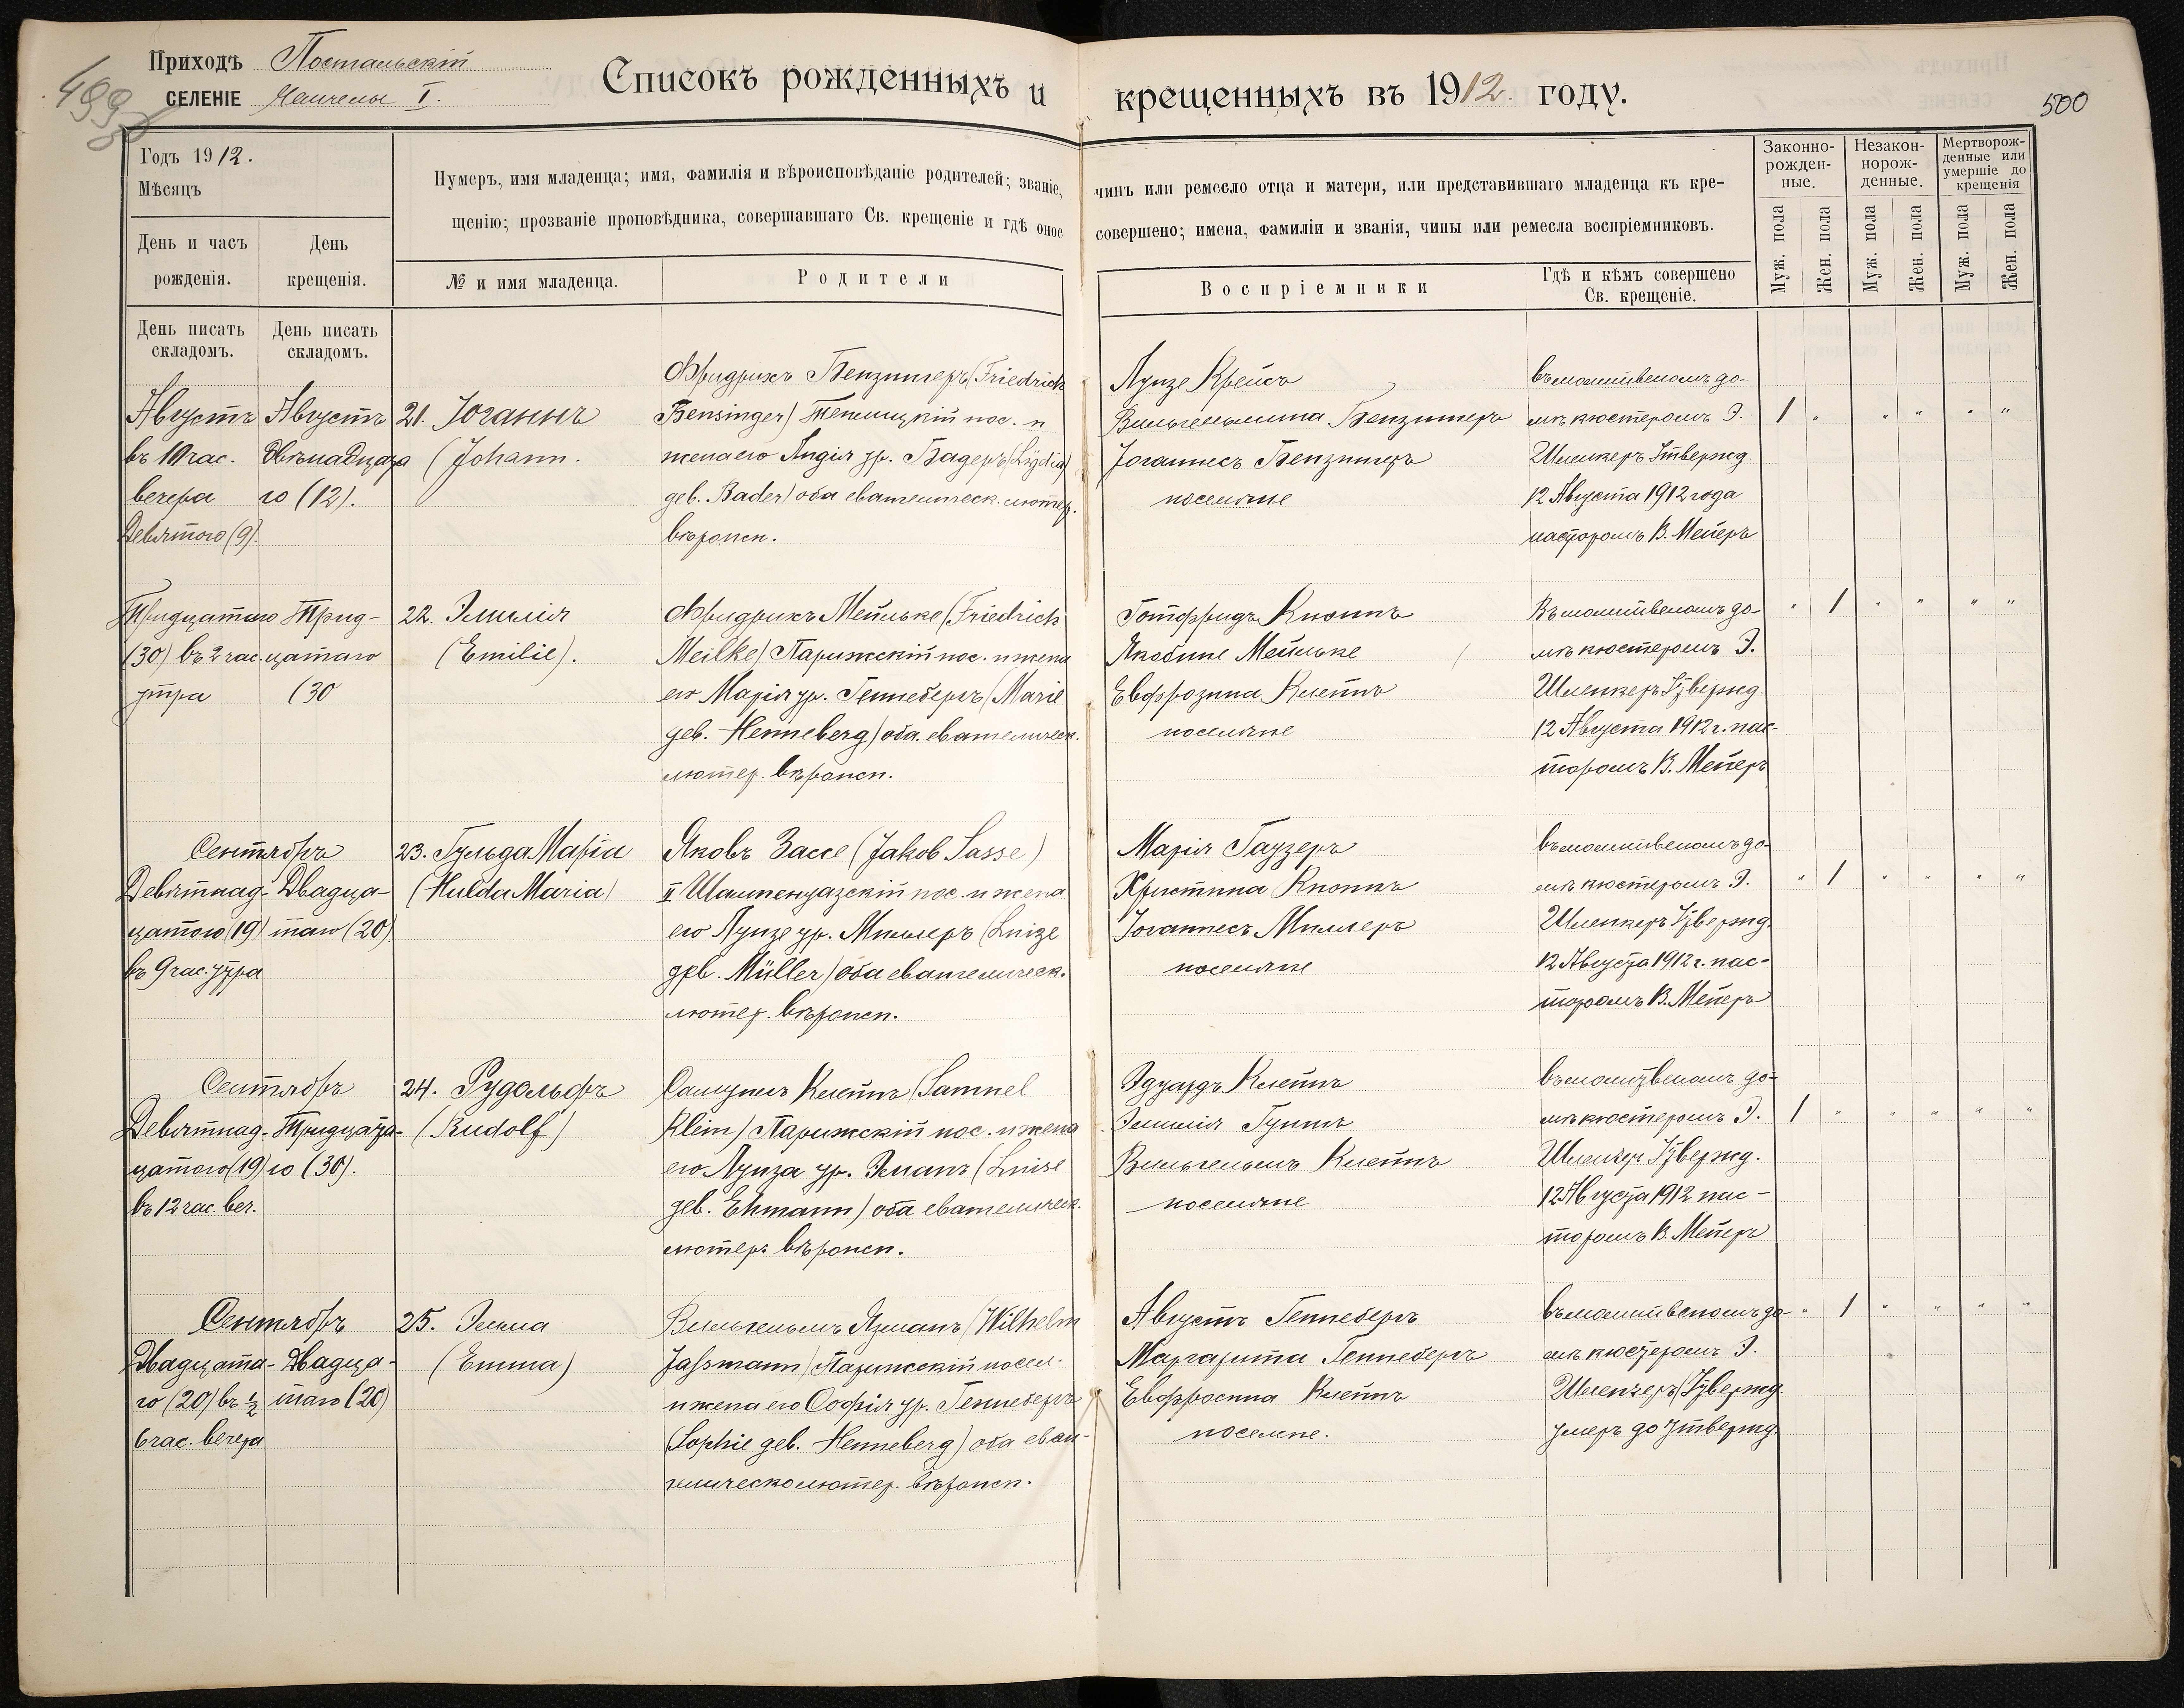 Приходъ Постальскій
СЕЛЕНІЕ Чемчелы I.
499
Списокъ рожденныхъ и крещенныхъ въ 1912 году.
500
Годъ 1912.
Мѣсяцъ
День и часъ рожденія.
День крещенія.
Нумеръ, имя младенца; имя, фамилія и вѣроисповѣданіе родителей; званіе, чинъ или ремесло отца и матери, или представившаго младенца къ кре-
щенію; прозваніе проповѣдника, совершавшаго Св. крещеніе и гдѣ оное совершено; имена, фамиліи и званія, чины или ремесла воспріемниковъ.
№ и имя младенца.
Родители
Воспріемники
Гдѣ и кѣмъ совершено Св. крещеніе.
Законно-рожден-ные.
Незакон-норож-денные.
Мертворож-денные или умершіе до крещенія
Муж. пола
Жен. пола
Муж. пола
Жен. пола
Муж. пола
Жен. пола
День писать складомъ.
День писать складомъ.
Августъ
въ 10 час.
вечера
Девятого (9).
Августъ
Двѣнадцата
го (12).
21. Іоганнъ
(Johann.
Фридрихъ Бензингеръ (Friedrich
Bensinger) Теплицкій пос. и
жена его Лидія ур. Бадеръ (Lydia
geb. Bader) оба евангелическ. лютер.
вѣроисп.
Луизе Крейсъ
Вильгельмина Бензингеръ
Іоганнесъ Бензингеръ
поселяне
въ молитвеномъ до-
мѣ кюстеромъ Э.
Шленкеръ Утвержд.
12 Августа 1912 года
пасторомъ В. Мейеръ
1 " " " " "
Тридцатаго
(30) въ 2 час.
утра
Трид-
цатаго
(30
22. Эмилія
(Emilie).
Фридрихъ Мейльке (Friedrich
Meilke) Парижскій пос. и жена
его Марія ур. Геннебергъ (Marie
geb. Henneberg) оба евангелическ.
лютер. вѣроисп.
Готфридъ Кноппъ
Якобине Мейльке
Евфрозина Клеинъ
поселяне
Въ молитвеномъ до-
мѣ кюстеромъ Э.
Шленкеръ Утвержд.
12 Августа 1912 г. пас-
торомъ В. Мейеръ
" 1 " " " "
Сентябрь
Девятнад-
цатого (19)
въ 9 час. утра
Двадца-
таго (20)
23. Гульда Марія
(Hulda Maria)
Яковъ Зассе (Jakob Sasse)
II Шампенуазскій пос. и жена
его Луизе ур. Миллеръ (Luize
geb. Müller) оба евангелическ.
лютер. вѣроисп.
Марія Гаузеръ
Христина Кноппъ
Іоганнесъ Миллеръ
поселяне
въ молитвеномъ до-
мѣ кюстеромъ Э.
Шленкеръ Утвержд.
12 Августа 1912 г. пас-
торомъ В. Мейеръ
" 1 " " " "
Сентябрь
Девятнад-
цатого (19)
въ 12 час. веч.
Тридцата-
го (30).
24. Рудольфъ
(Rudolf)
Самуилъ Клеинъ (Samuel
Klein) Парижскій пос. и жена
его Луиза ур. Эманъ (Luise
geb. Ehmann) оба евангелическ.
лютер. вѣроисп.
Эдуардъ Клеинъ
Эмилія
Вильгельмъ Клеинъ
поселяне
въ молитвеномъ до-
мѣ кюстеромъ Э.
Шленкеръ Утвержд.
12 Августа 1912 пас-
торомъ В. Мейеръ
1 " " " " "
Сентябрь
Двадцата-
го (20) въ ½
6 час. вечера
Двадца-
таго (20)
25. Эмма
(Emma)
Вильгельмъ Ясманъ (Wilhelm
Jaßmann) Парижскій посел.
и жена его Софія ур. Геннебергъ
(Sophie geb. Henneberg) оба еван-
гелическо лютер. вѣроисп.
Августъ Геннебергъ
Маргарита Геннебергъ
Евфросина Клеинъ
поселяне.
въ молитвеномъ до-
мѣ кюстеромъ Э.
Шленкеръ (Утвержд.
Умеръ до Утвержд.
" 1 " " " "